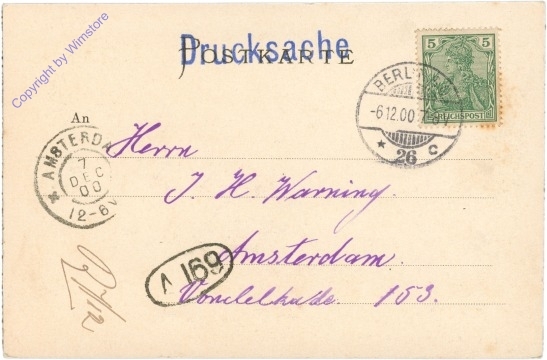 Drucksache
POSTKARTE
Copyright by Wimstore
5 5
REICHSPOST
BERLIN
-6.12.00
26 C
An
AMSTERDAM
7
DEC
00
12-6V
Herrn
J. H. Warning.
Amsterdam.
Vondelkade 153.
A 169